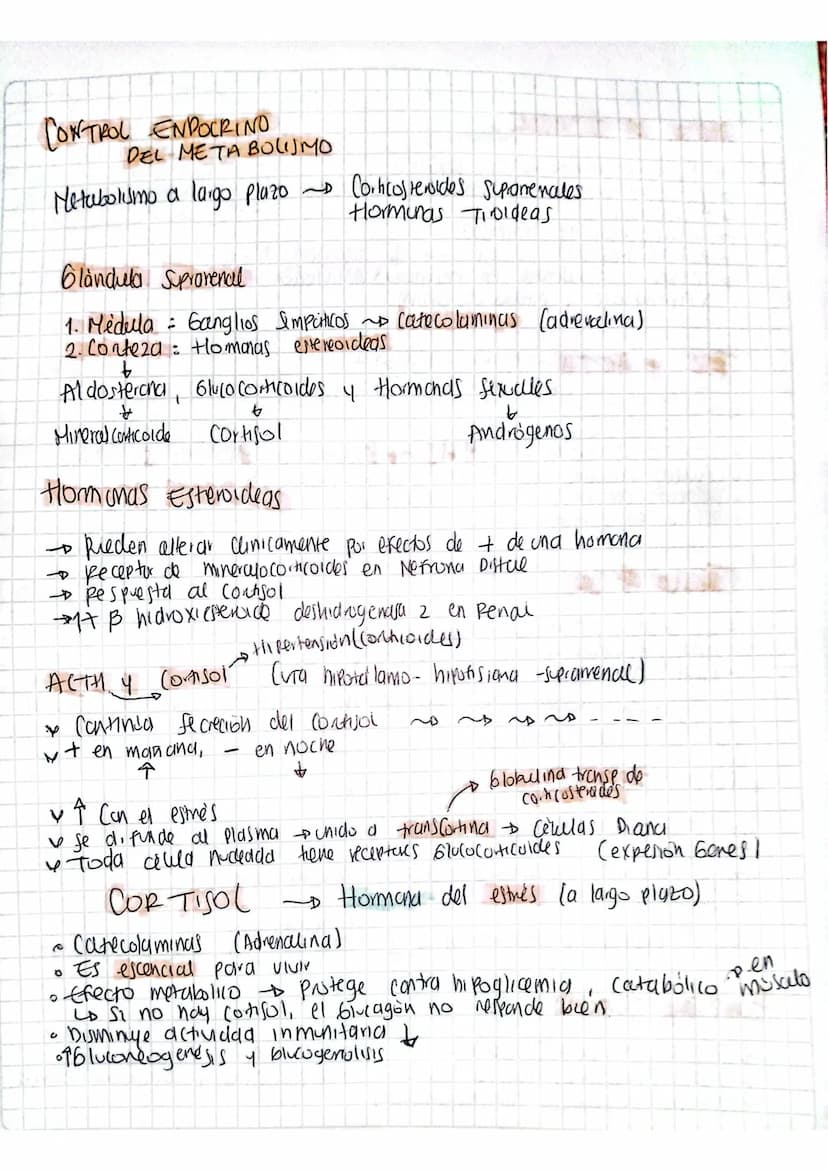 CONTROL ENDOCRINO
DEL METABOLISMO
Metabolismo a largo plazo → Corticosteroides suprarrenales
Hormonas Tiroideas
Glándula Suprarrenal
1. Médula = Ganglios Simpáticos → Catecolaminas (adrenalina)
2. Corteza = Hormonas estereoideas
↓
Aldosterona, Glucocorticoides y Hormonas sexuales
↓ ↓ ↓
Mineralcorticoide Cortisol Andrógenos
Hormonas Esteroideas
→ Pueden alterar clinicamente por efectos de + de una hormona
→ Receptor de mineralocorticoides en Nefrona Distal
→ Respuesta al cortisol
→ β deshidrogenasa 2 en Renal
Hipertensión (corticoides)
ACTH y Cortisol (vía hipotálamo-hipofisiana-suprarrenal)
Continua secreción del cortisol
+ en mañana, - en noche
↑ ↓
Globulina transp de
corticosteroides
↑ Con el estrés
Se difunde al plasma → unido a transcortina → Células Diana
Toda célula nucleada tiene receptores Glucocorticoides (expresión Genes)
CORTISOL → Hormona del estrés (a largo plazo)
• Catecolaminas (Adrenalina)
• Es escencial para vivir
• Efecto metabolico → Protege contra hipoglicemia, catabólico → en
músculo
↳ Si no hay cortisol, el Glucagón no responde bien
• Disminuye actividad inmunitaria ↓
• ↑ Gluconeogenesis y Glucogenolisis